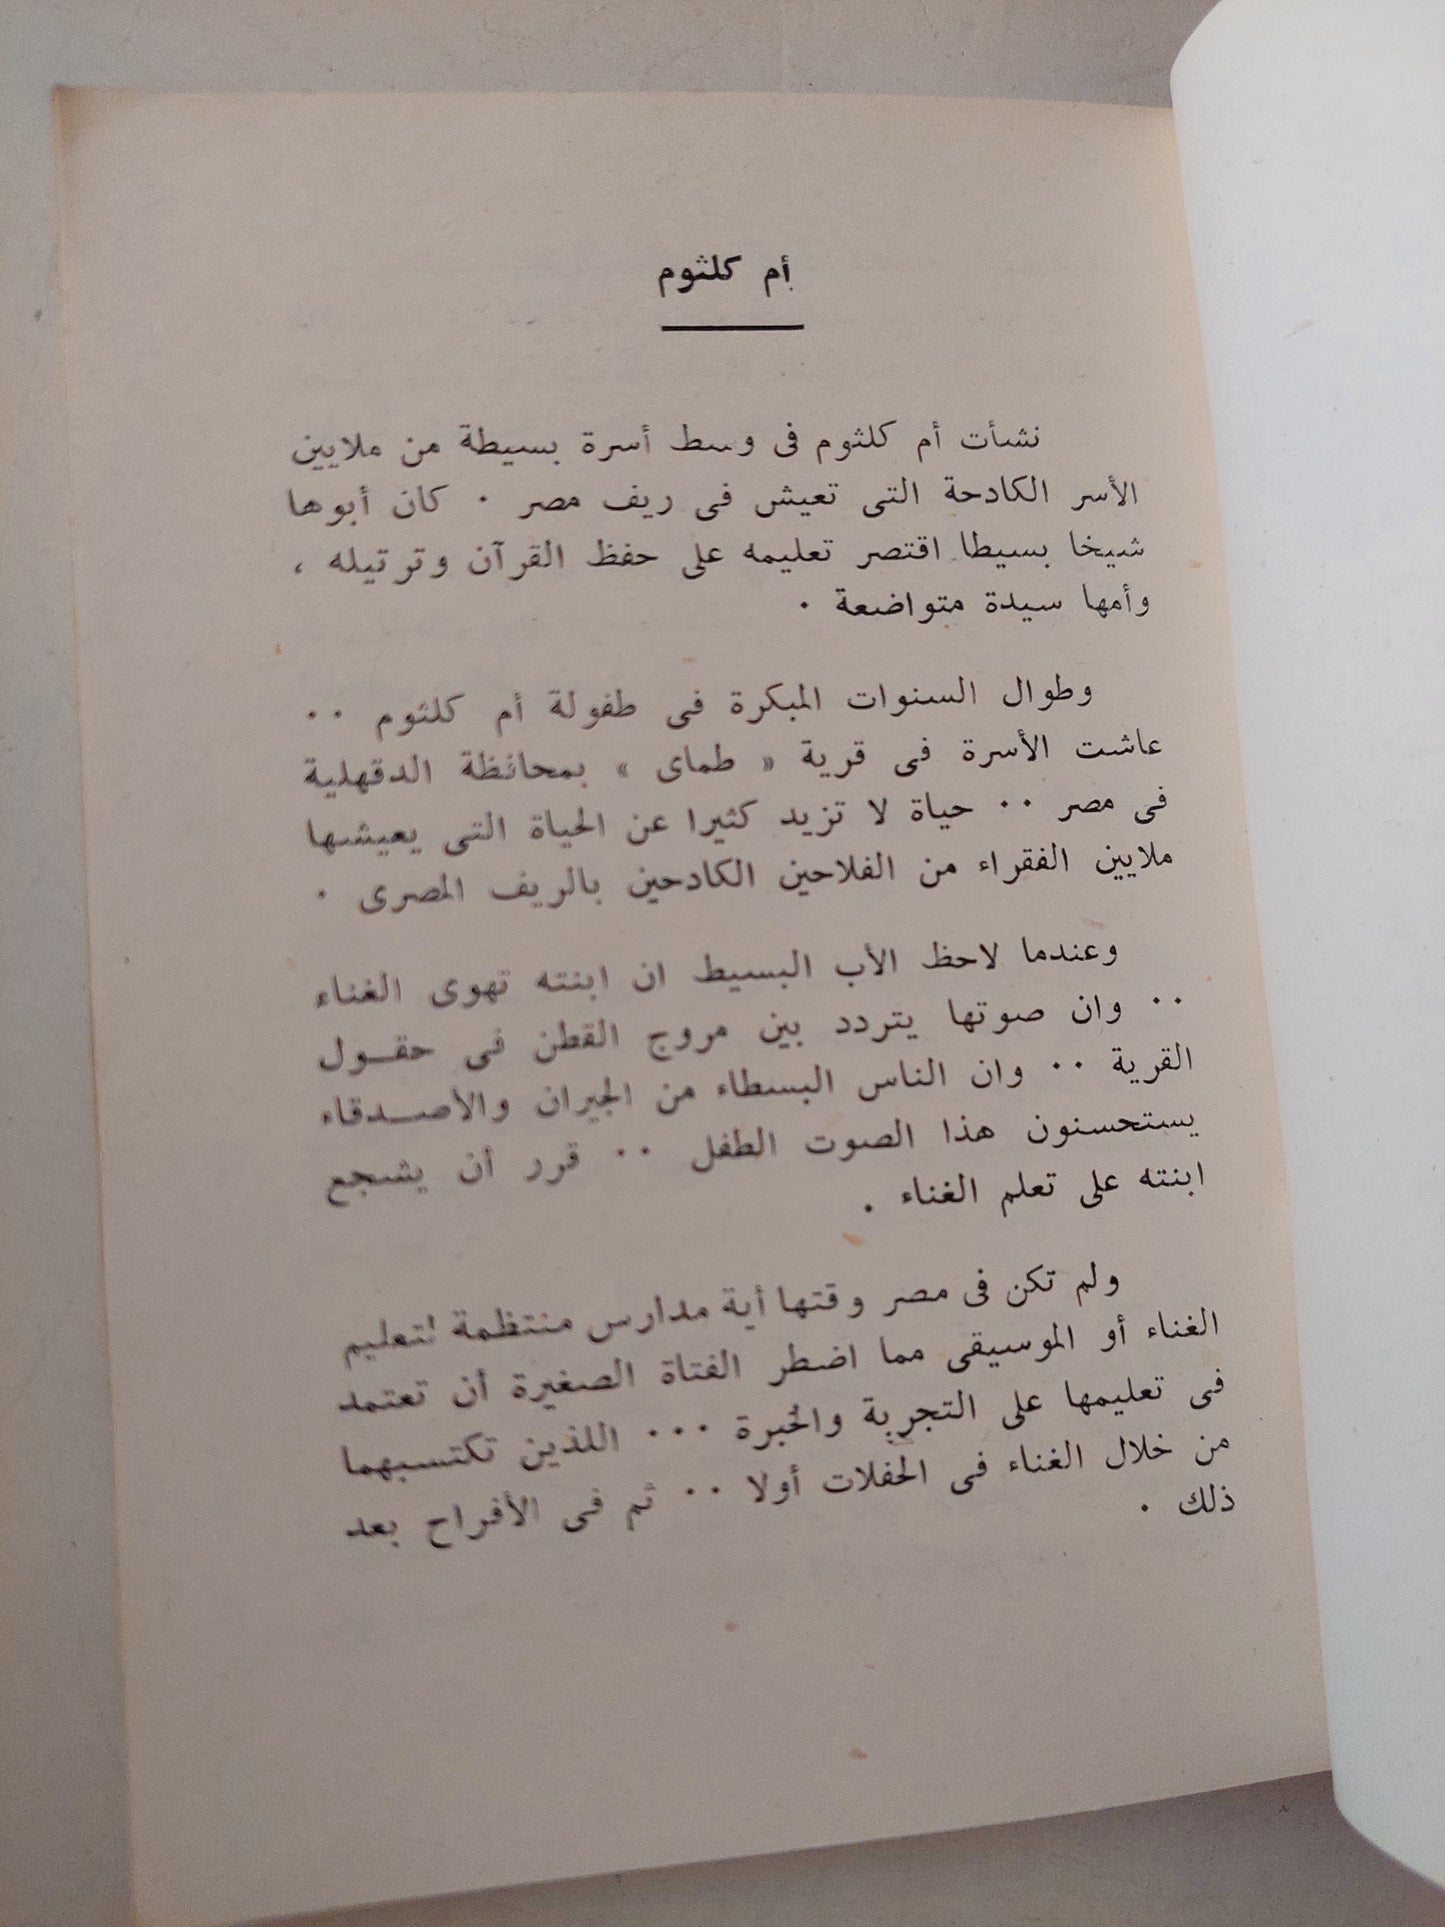 أم كلثوم
نشأت أم كلثوم فى وسط أسرة بسيطة من ملايين
الأسر الكادحة التى تعيش فى ريف مصر ٠ كان أبوها
شيخا بسيطا اقتصر تعليمه على حفظ القرآن وترتيله ،
وأمها سيدة متواضعة ٠
وطوال السنوات المبكرة فى طفولة أم كلثوم ٠٠
عاشت الأسرة فى قرية « طماى » بمحافظة الدقهلية
فى مصر ٠٠ حياة لا تزيد كثيرا عن الحياة التى يعيشها
ملايين الفقراء من الفلاحين الكادحين بالريف المصرى ٠
وعندما لاحظ الأب البسيط ان ابنته تهوى الغناء
٠٠ وان صوتها يتردد بين مروج القطن فى حقـول
القرية ٠٠ وان الناس البسطاء من الجيران والأصـدقاء
يستحسنون هذا الصوت الطفل ٠٠ قرر أن يشجع
ابنته على تعلم الغناء ٠
ولم تكن فى مصر وقتها أية مدارس منتظمة لتعليم
الغناء أو الموسيقى مما اضطر الفتاة الصغيرة أن تعتمد
فى تعليمها على التجربة والخبرة ٠٠٠ اللذين تكتسبهما
من خلال الغناء فى الحفلات أولا ٠٠ ثم فى الأفراح بعد
ذلك ٠